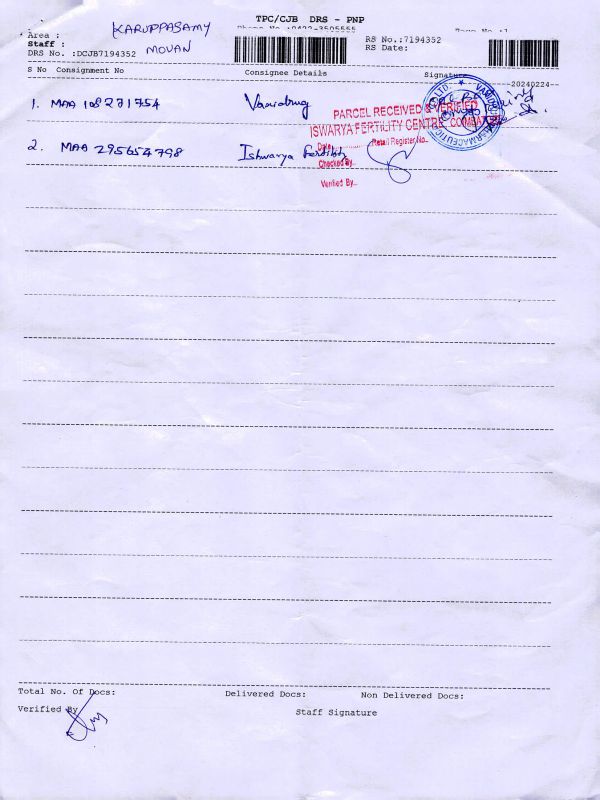 TPC/CJB DRS - PNP
Area : KARUPPASAMY
Phone No :0422-3505555
Page No :1
Staff : MOVAN
DRS No. :DCJB7194352
RS No.:7194352
RS Date:
S No Consignment No Consignee Details Signature
20240224
1. MAA 108271754
PARCEL RECEIVED & VERIFIED
ISWARYA FERTILITY CENTRE, COIMBATORE
Date Retail Register No.
2. MAA 295654798 Ishwarya Fertility
Checked By
Verified By
Total No. Of Docs: Delivered Docs: Non Delivered Docs:
Verified By
Staff Signature